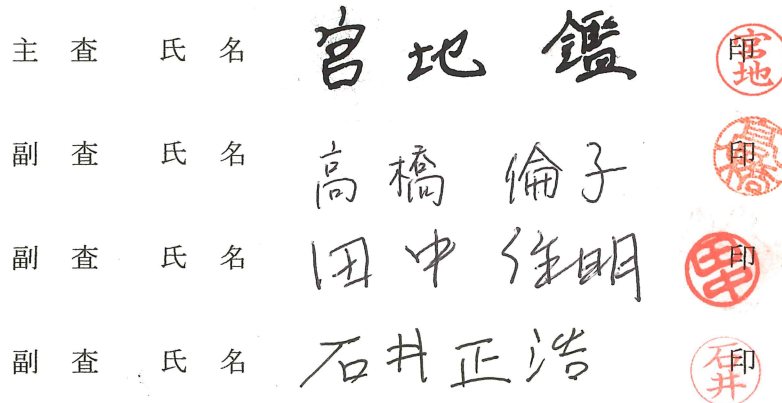 主査 氏名 宮地 鑑 印 宮地
副査 氏名 高橋 倫子 印 高橋
副査 氏名 田中 住明 印 田中
副査 氏名 石井正浩 印 石井